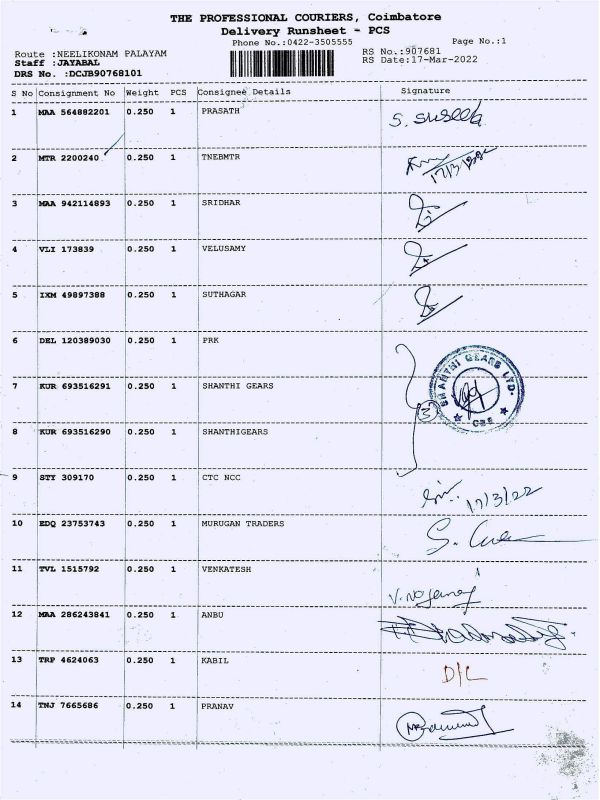 THE PROFESSIONAL COURIERS, Coimbatore
Delivery Runsheet - PCS
Phone No.:0422-3505555 Page No.:1
Route :NEELIKONAM PALAYAM RS No.:907681
Staff :JAYABAL RS Date:17-Mar-2022
DRS No. :DCJB90768101
S No Consignment No Weight PCS Consignee Details Signature
1 MAA 564882201 0.250 1 PRASATH S. Suseela
2 MTR 2200240 0.250 1 TNEBMTR 17/3/
3 MAA 942114893 0.250 1 SRIDHAR
4 VLI 173839 0.250 1 VELUSAMY
5 IXM 49897388 0.250 1 SUTHAGAR
6 DEL 120389030 0.250 1 PRK
SHANTHI GEARS LTD.
CBE
7 KUR 693516291 0.250 1 SHANTHI GEARS 3
8 KUR 693516290 0.250 1 SHANTHIGEARS
9 STY 309170 0.250 1 CTC NCC 17/3/22
10 EDQ 23753743 0.250 1 MURUGAN TRADERS S.
11 TVL 1515792 0.250 1 VENKATESH
12 MAA 286243841 0.250 1 ANBU
13 TRP 4624063 0.250 1 KABIL D/L
14 TNJ 7665686 0.250 1 PRANAV